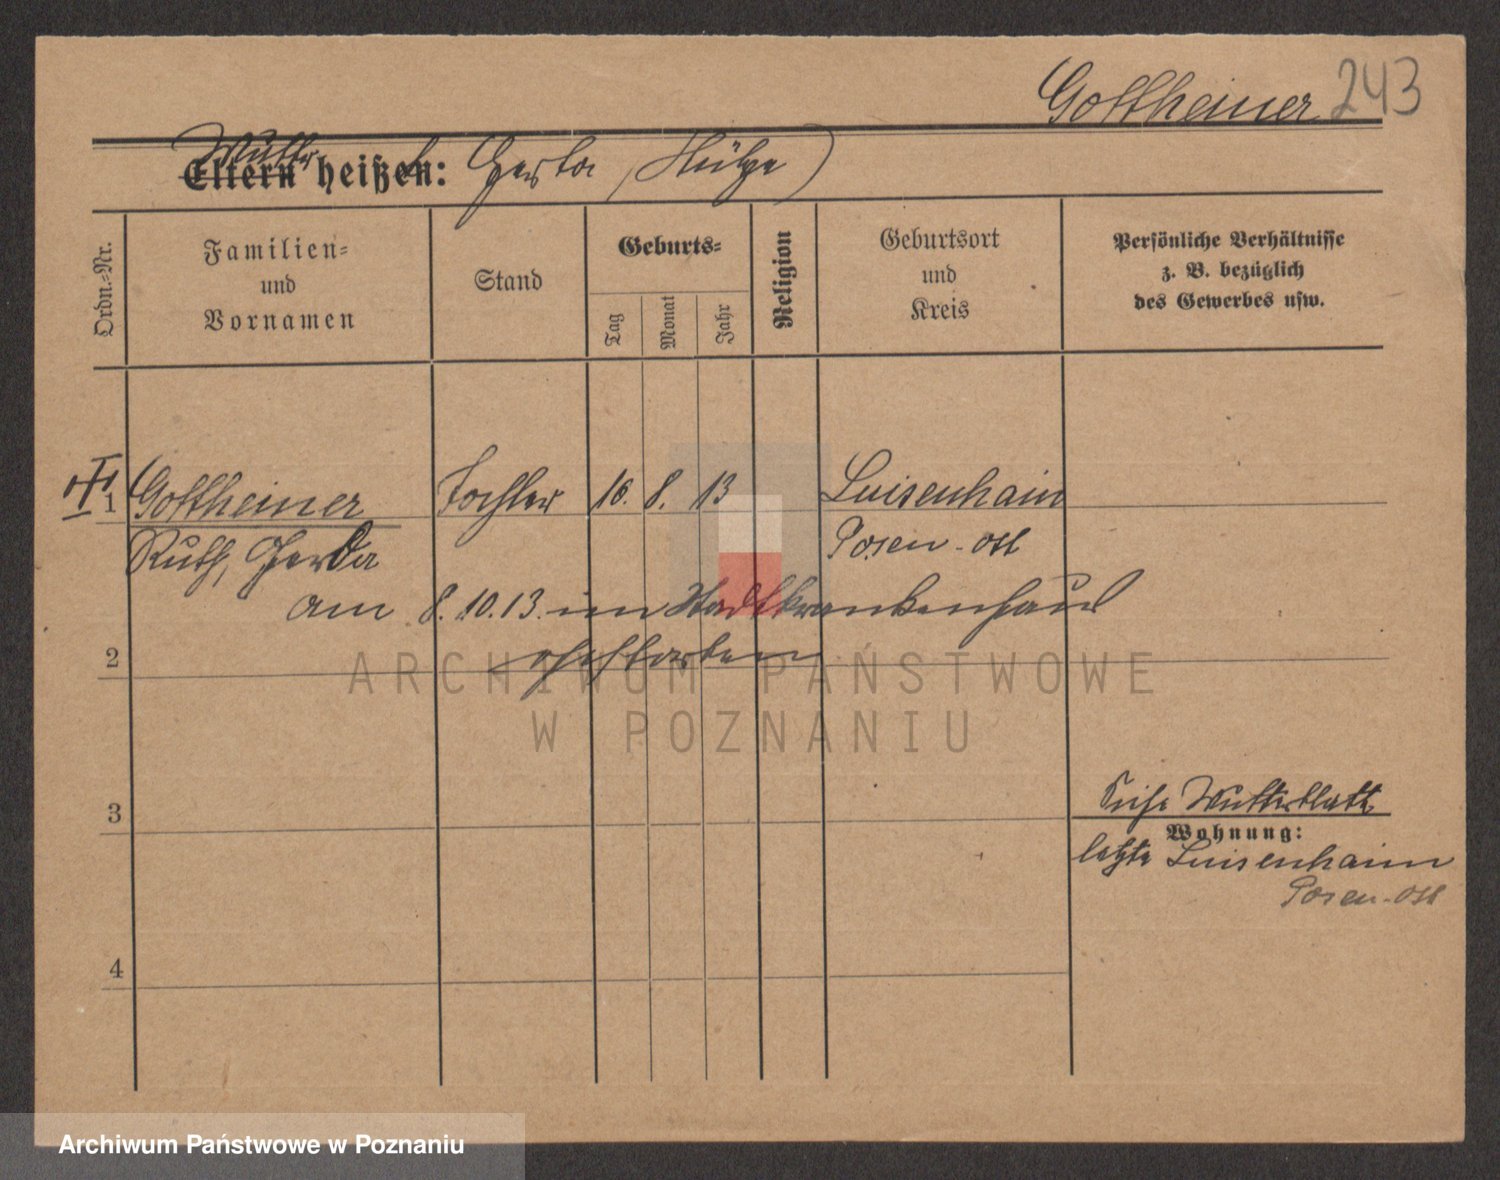 Gottheiner 243
Mutter
Eltern heißen: Gerta (Stütze)
Ordn.-Nr.
Familien-
und
Vornamen
Stand
Geburts-
Tag
Monat
Jahr
Religion
Geburtsort
und
Kreis
Persönliche Verhältnisse
z. B. bezüglich
des Gewerbes usw.
1 Gottheiner Tochter 16. 8. 13 Luisenhain
Ruth, Gerda Posen-ost
am 8.10.13. im Stadtkrankenhaus
2 gestorben
3
siehe Mutterblatt
Wohnung:
letzte Luisenhain
Posen-ost
4
ARCHIWUM PAŃSTWOWE
W POZNANIU
Archiwum Państwowe w Poznaniu